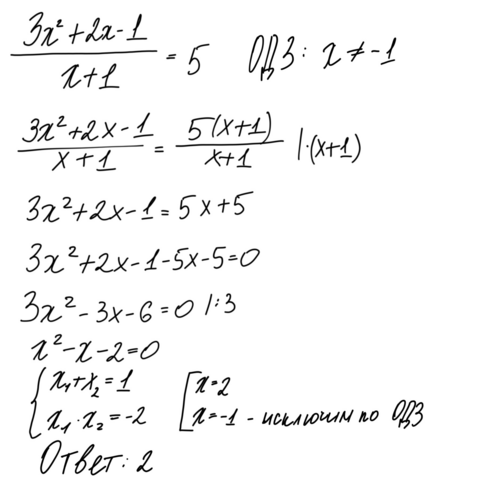 (3x²+2x-1)/(x+1) = 5 ОДЗ: x ≠ -1
(3x²+2x-1)/(x+1) = 5(x+1)/(x+1) |·(x+1)
3x²+2x-1=5x+5
3x²+2x-1-5x-5=0
3x²-3x-6=0 |:3
x²-x-2=0
{ x₁+x₂=1 [ x=2
{ x₁·x₂=-2 [ x=-1 - исключим по ОДЗ
Ответ: 2